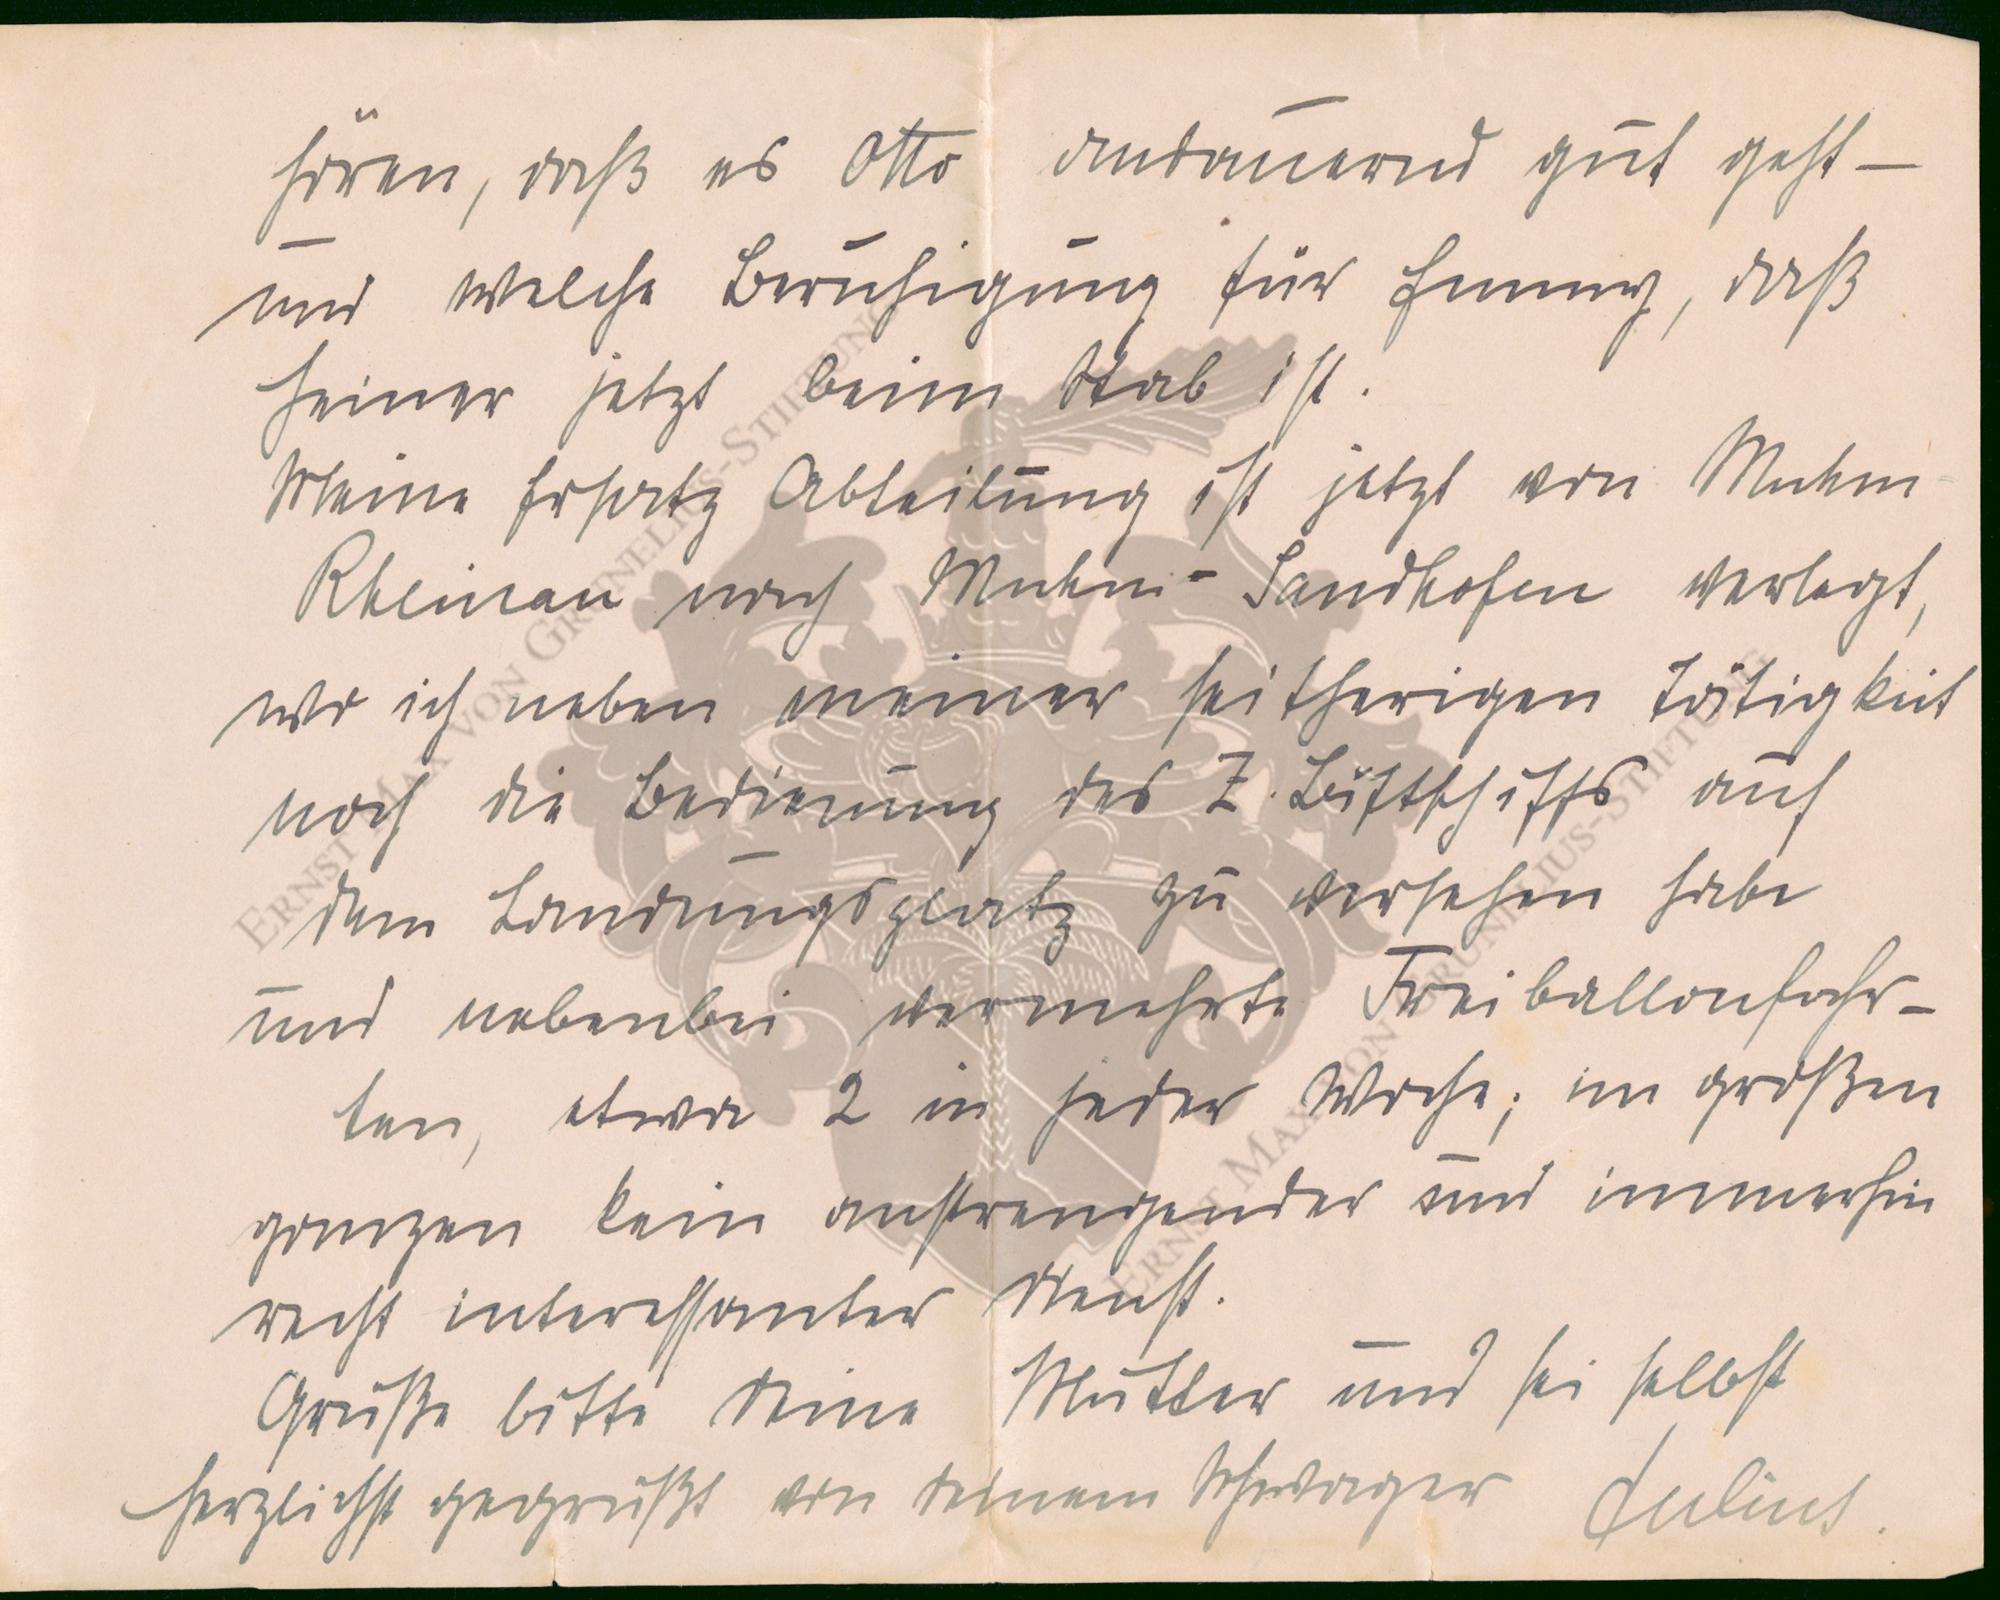 hören, daß es Otto andauernd gut geht –
und welche Beruhigung für Emmy, daß
Heiner jetzt beim Stab ist.
Meine Ersatz Abteilung ist jetzt von Mnhm-
Rheinau nach Mnhm- Sandhofen verlegt,
wo ich neben meiner seitherigen Tätigkeit
noch die Bedienung des Z. Luftschiffs auf
dem Landungsplatz zu versehen habe
und nebenbei vermehrte Freiballonfahr-
ten, etwa 2 in jeder Woche; im großen
ganzen kein anstrengender und immerhin
recht interessanter Dienst.
Grüße bitte Deine Mutter und sei selbst
herzlichst gegrüßt von Deinem Schwager Julius.
ERNST MAX VON GRUNELIUS-STIFTUNG
ERNST MAX VON GRUNELIUS-STIFTUNG